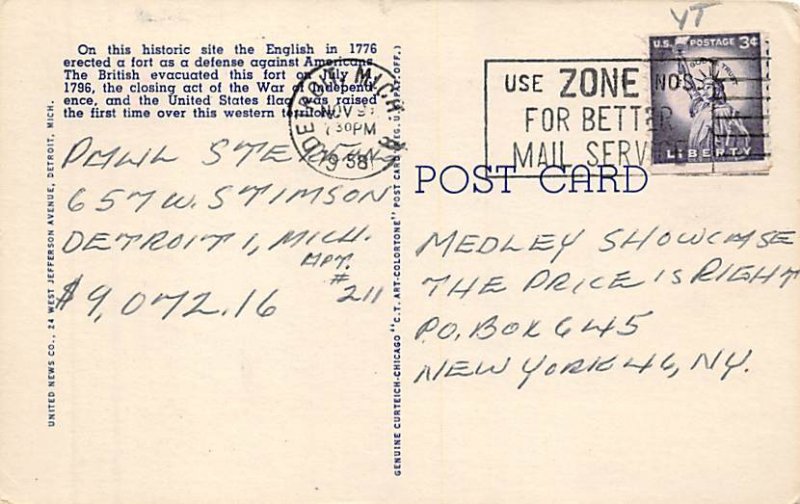 YT
On this historic site the English in 1776
erected a fort as a defense against Americans.
The British evacuated this fort on July
1796, the closing act of the War of Independ-
ence, and the United States flag was raised
the first time over this western territory.
DETROIT, MICH.
NOV
730PM
1958
USE ZONE NOS.
FOR BETTER
MAIL SERVICE
U.S. POSTAGE 3¢
LIBERTY
POST CARD
657 W. STIMSON
DETROIT 1, MICH.
APT.
#
211
$9,072.16
MEDLEY SHOWCASE
THE PRICE IS RIGHT
P.O. BOX 645
NEW YORK 46, NY.
UNITED NEWS CO., 24 WEST JEFFERSON AVENUE, DETROIT, MICH.
GENUINE CURTEICH-CHICAGO "C.T. ART-COLORTONE" POST CARD (REG. U.S. PAT. OFF.)